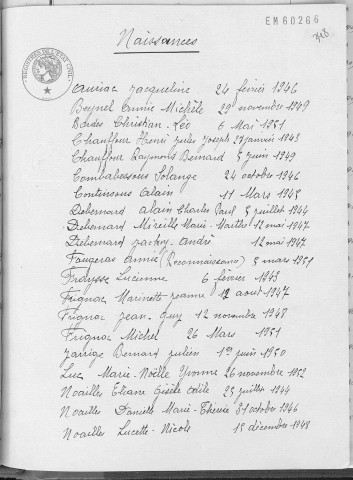 EM60266
348
Naissances
REGISTRES DE L'ETAT CIVIL
Jacqueline 24 février 1946
Beynel Annie Michèle 29 novembre 1949
Bordes Christian-Léo 6 Mai 1951
Chauffour Henri Jules Joseph 27 janvier 1943
Chauffour Raymond Bernard 5 juin 1949
Combabessous Solange 24 octobre 1946
Contensous Alain 11 Mars 1945
Debernard Alain Charles Paul 5 juillet 1944
Debernard Mireille Marie-Marthe 12 mai 1947
Debernard Jacky-André 12 mai 1947
Faugeras Annie (Reconnaissance) 5 mars 1951
Fraysse Lucienne 6 février 1943
Frignac Marinette Jeanne 12 août 1947
Frignac Jean-Guy 12 novembre 1948
Frignac Michel 26 Mars 1951
Jarrige Bernard Julien 1er juin 1950
Luc Marie-Noëlle Yvonne 26 novembre 1952
Noailles Eliane Gisèle Odile 23 juillet 1944
Noailles Danielle Marie-Thérèse 31 octobre 1946
Noailles Lucette-Nicole 15 décembre 1948